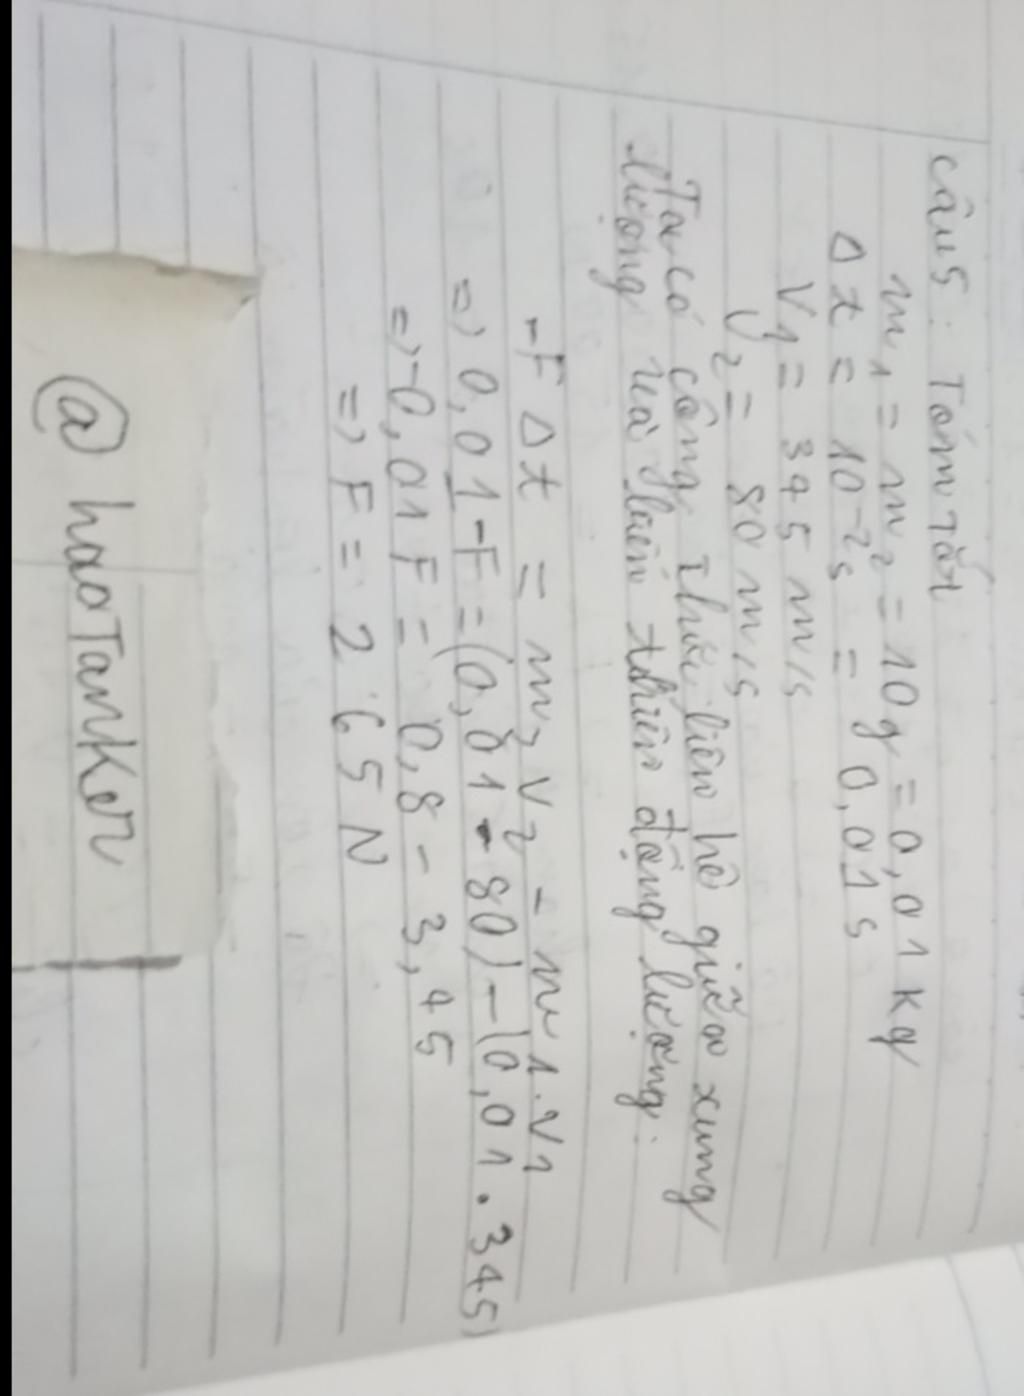 Câu 5: Tóm tắt
m1 = m2 = 10g = 0,01 kg
Δt = 10⁻²s = 0,01s
V1 = 345 m/s
V2 = 80 m/s
Ta có công thức liên hệ giữa xung
lượng và biến thiên động lượng:
-F Δt = m2 V2 - m1.V1
=> 0,01-F = (0,01-80) - (0,01.345)
=> -0,01F = 0,8 - 3,45
=> F = 265 N
@ haoTanKer